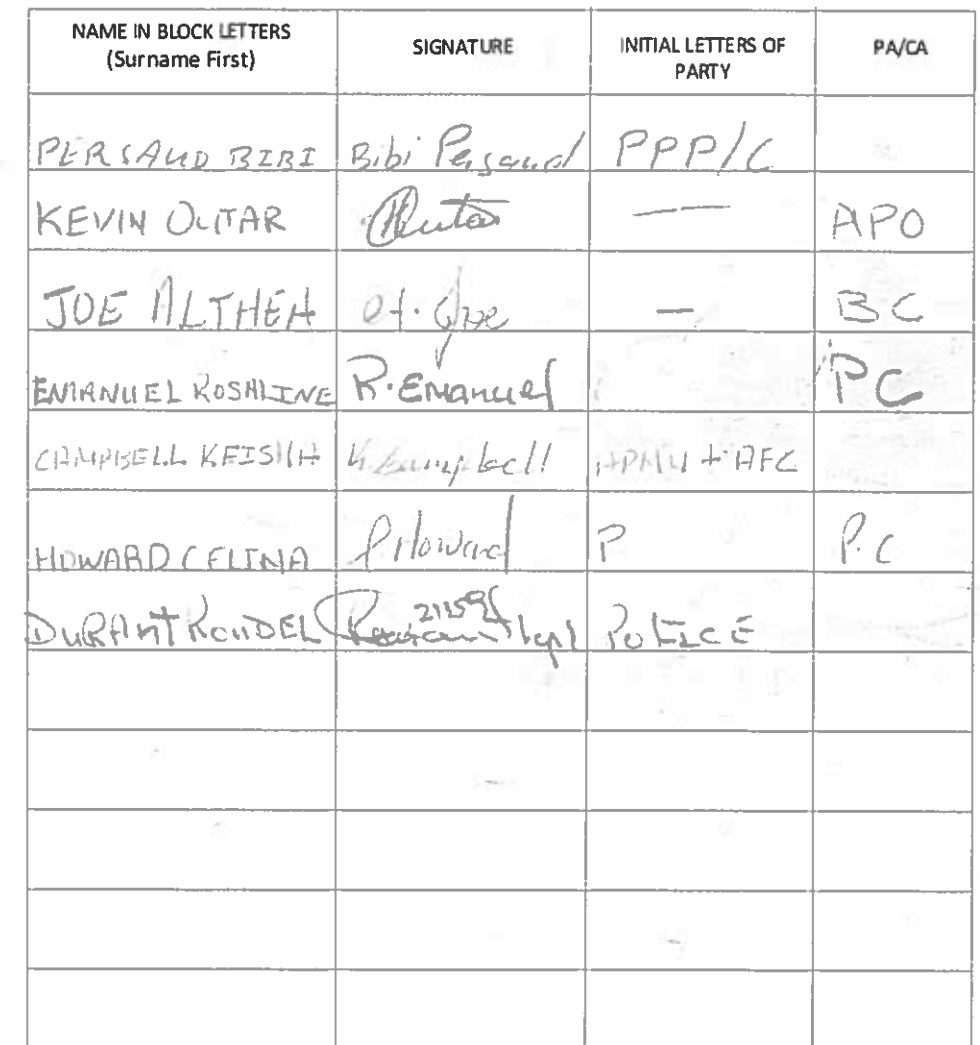 NAME IN BLOCK LETTERS SIGNATURE INITIAL LETTERS OF PA/CA
(Surname First) PARTY
PERSAUD BIBI Bibi Persaud PPP/C
KEVIN OUTAR — APO
JOE ALTHEA — BC
EMANUEL ROSHLINE R. Emanuel PC
CAMPBELL KEISHA K Campbell APNU + AFC
HOWARD CELINA Howard P P.C
DURANT RONDEL 21159 POLICE